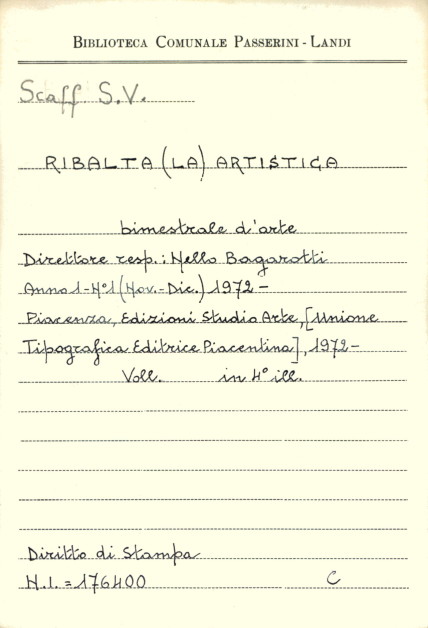 BIBLIOTECA COMUNALE PASSERINI - LANDI
Scaff S.V.
RIBALTA (LA) ARTISTICA
bimestrale d'arte
Direttore resp.: Nello Bagarotti
Anno 1 - N°1 (Nov.-Dic.) 1972 -
Piacenza, Edizioni Studio Arte, [Unione
Tipografica Editrice Piacentina], 1972 -
Voll. in 4° ill.
Diritto di Stampa
N.I. = 176400 C